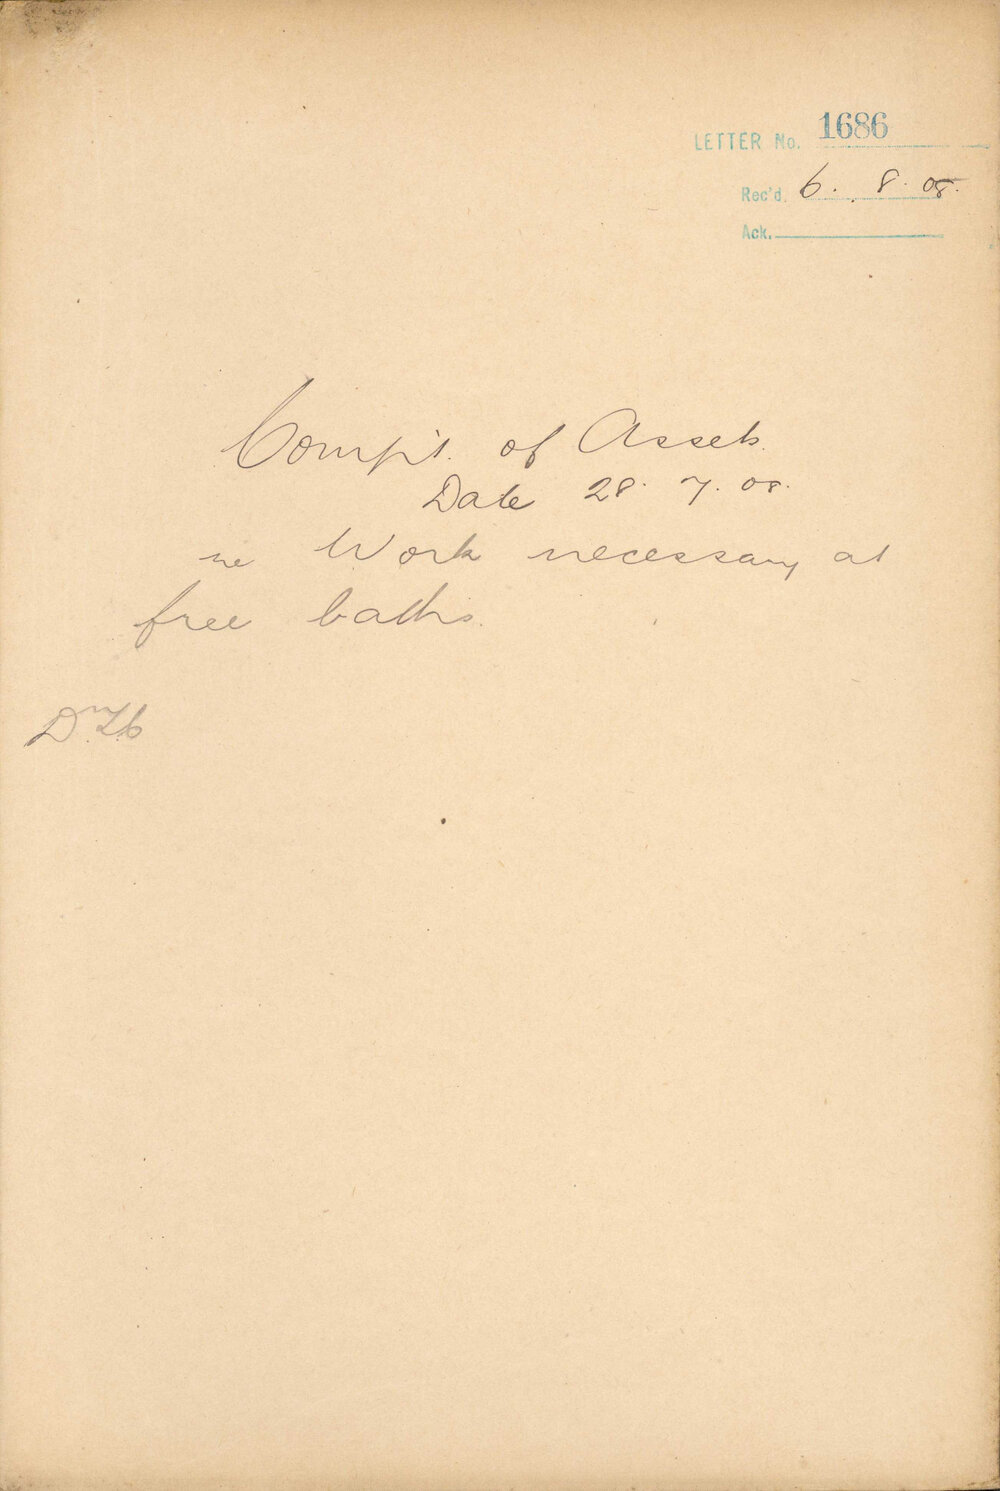 LETTER No. 1686
Rec'd. 6. 8. 08.
Ack.
Compt. of Assets.
Date 28. 7. 08.
re Work necessary at
free baths.